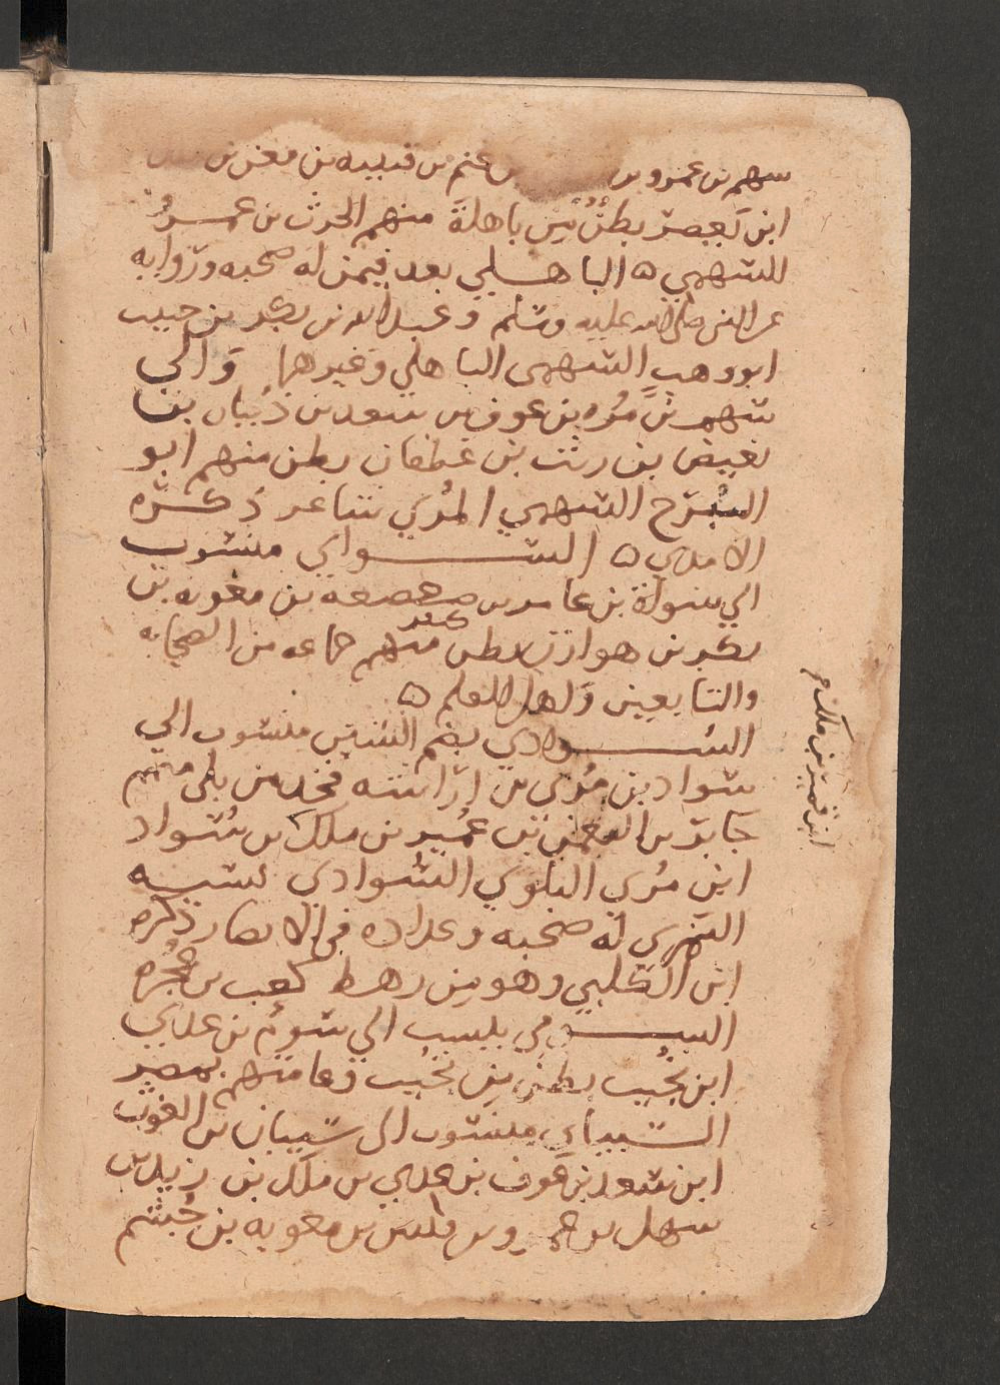 سهم بن عمرو بن بن غنم بن قتيبة بن معن بن
ابن يعصر بطن من باهلة منهم الحرث بن عمرو
السهمي ه الباهلي يعد فيمن له صحبه ورواية
عن النبي صلى الله عليه وسلم وعبد الله بن بكر بن حبيب
ابو وهب السهمي الباهلي وغيرهما والي
سهم بن مره بن عوف بن سعد بن ذبيان بن
بغيض بن ريث بن غطفان بطن منهم ابو
البرح السهمي المري شاعر ذكره
الامدي ه السواي منسوب
الي سواة بن عامر بن صعصعه بن معويه بن
بكر بن هوازن بطن كبير منهم جماعه من الصحابه
والتابعين واهل العلم ه
السوادي بضم السين منسوب الي
سواد بن مري بن اراشه فخذ من بلي منهم
جابر بن النعمن بن عمير بن ملك بن سواد
ابن مري البلوي السوادي نسبه
له صحبه وعداده في الانصار ذكره
ابن الكلبي وهو من رهط كعب بن عجره
السومي ينسب الي سوم بن عدي
ابن تجيب بطن من تجيب وعامتهم بمصر
السيباني منسوب الى سيبان بن الغوث
ابن سعد بن عوف بن عدي بن ملك بن زيد بن
سهل بن عمرو بن قيس بن معويه بن جشم
ابن قمير بن ملك